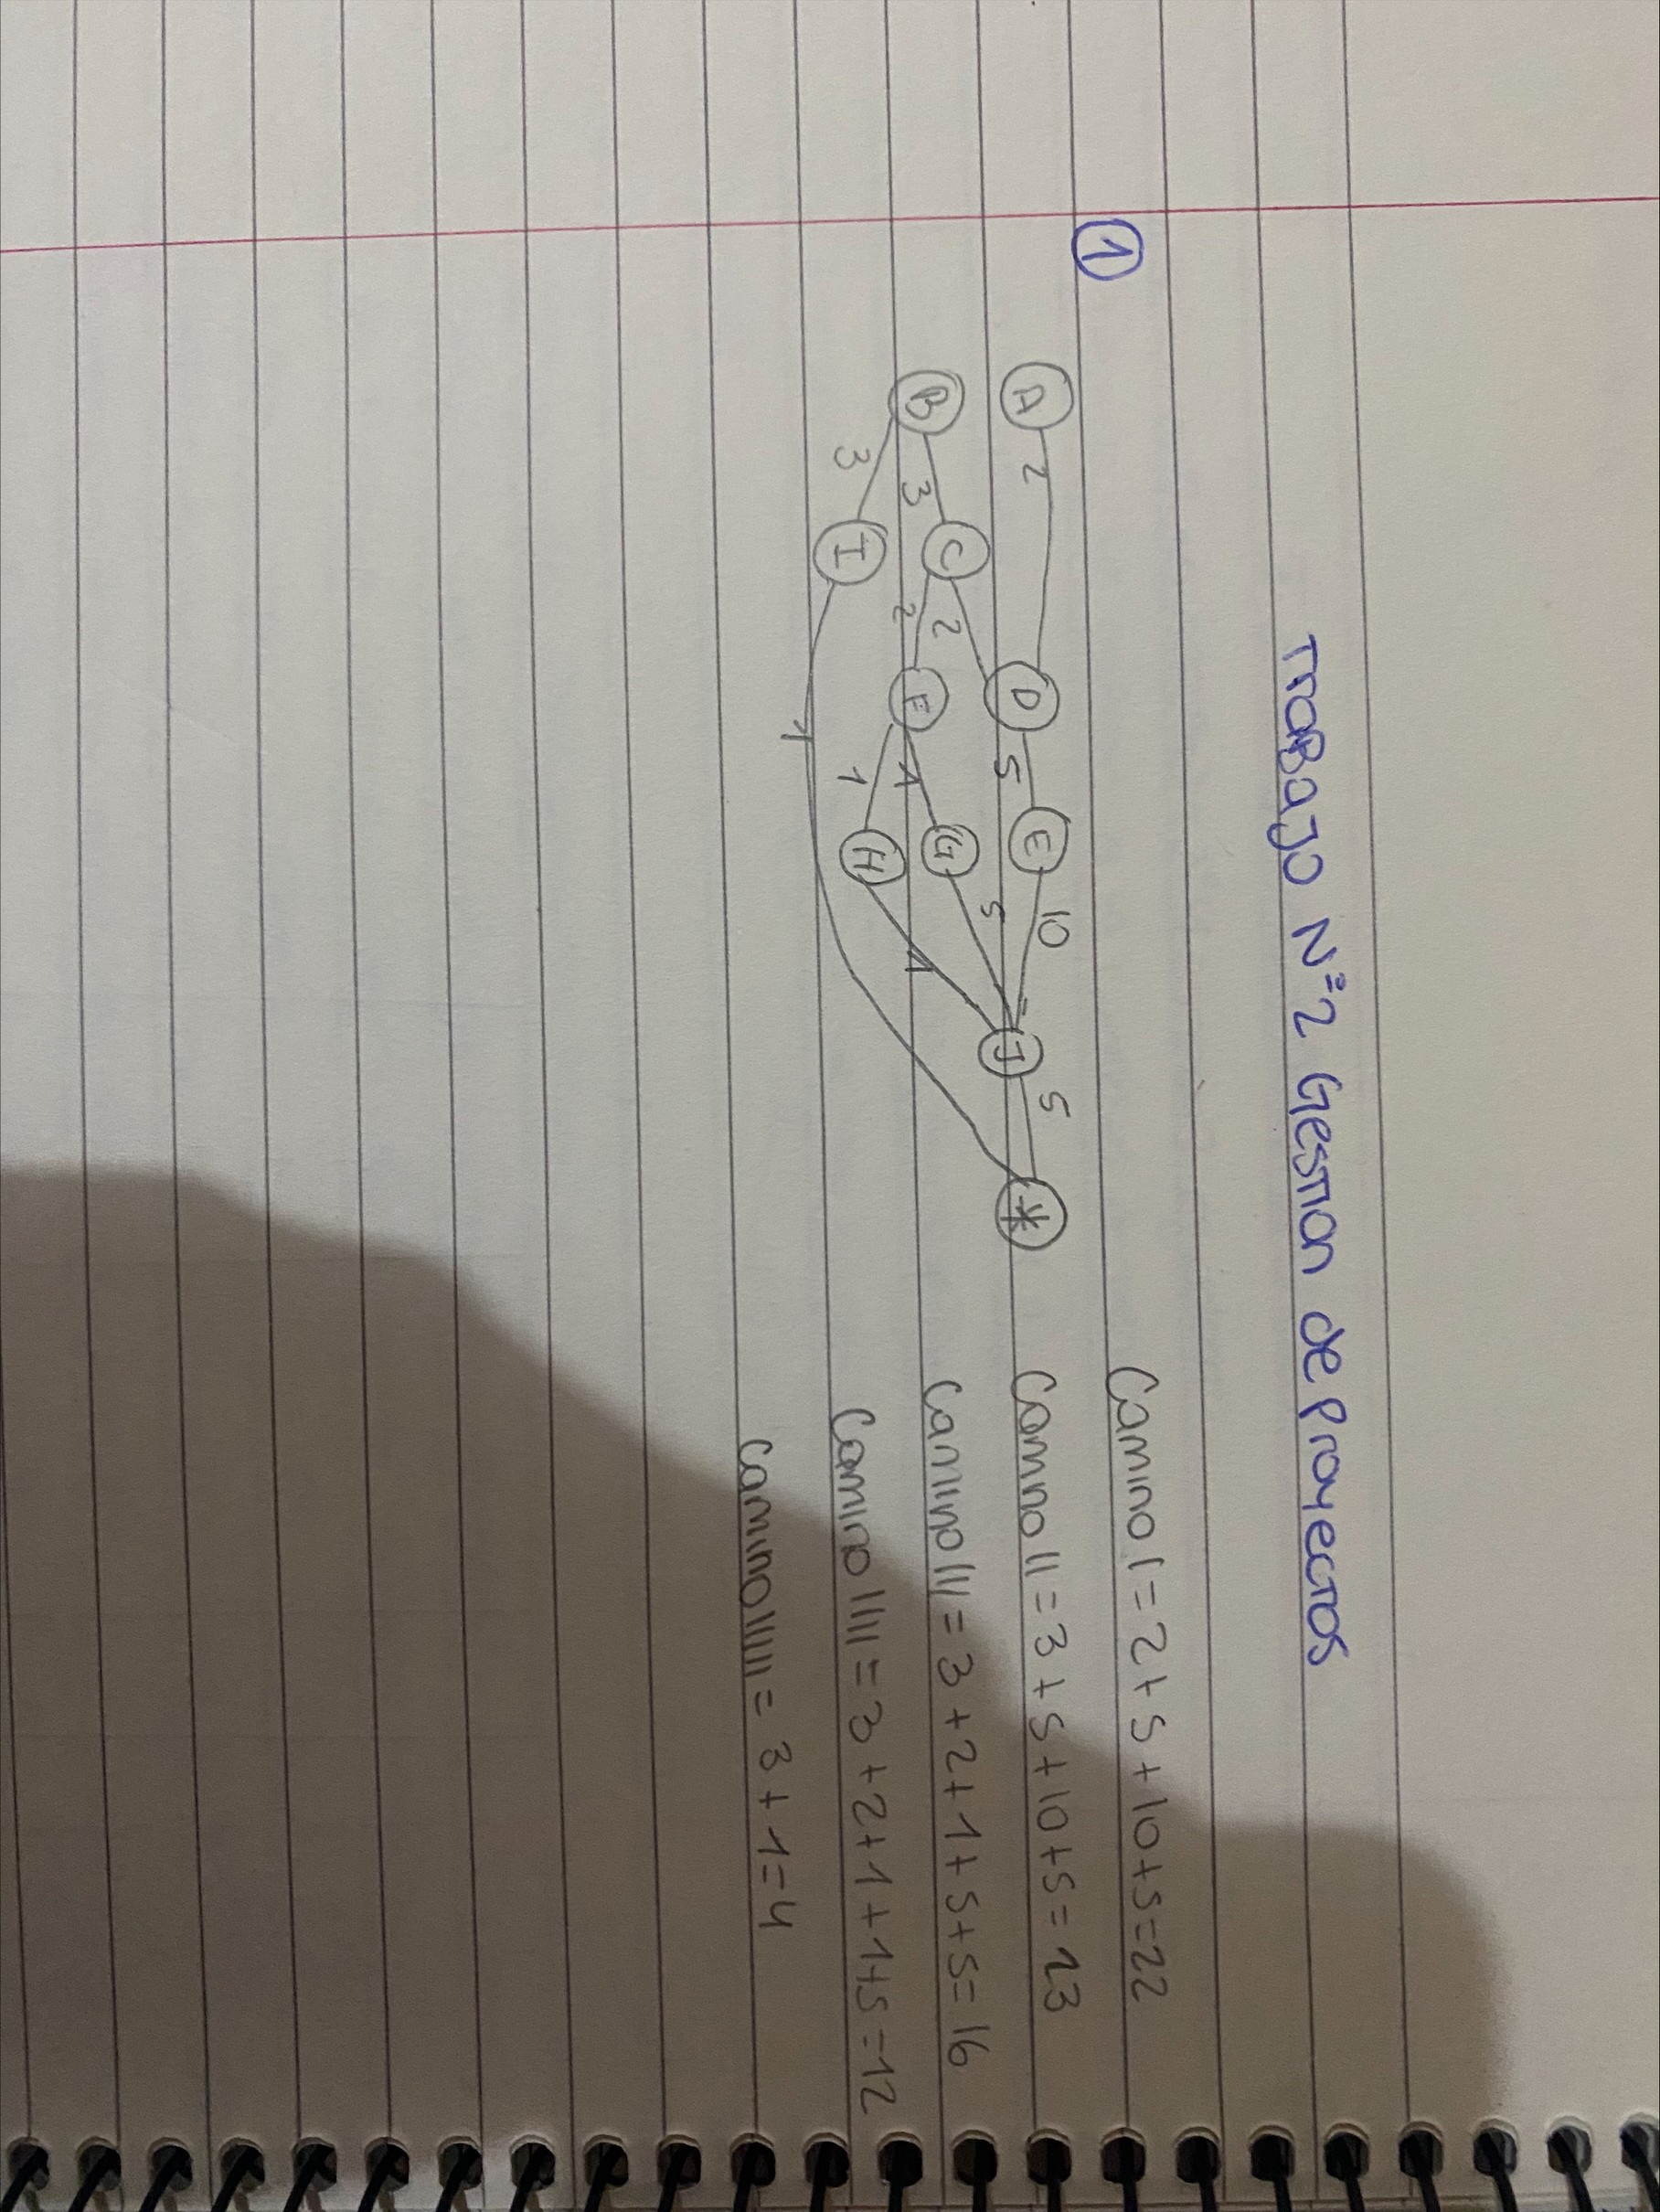 TRABAJO N°2 Gestion de Proyectos
1
A 2 D 5 E 10 J 5 *
B 3 C 2 2 F 1 G 5
3 I 1 H 1
1
Camino I = 2+5+10+5=22
Camno II = 3+5+10+5= 23
Camino III = 3+2+1+5+5= 16
Camino IIII = 3+2+1+1+5=12
Camino IIIII = 3+1=4